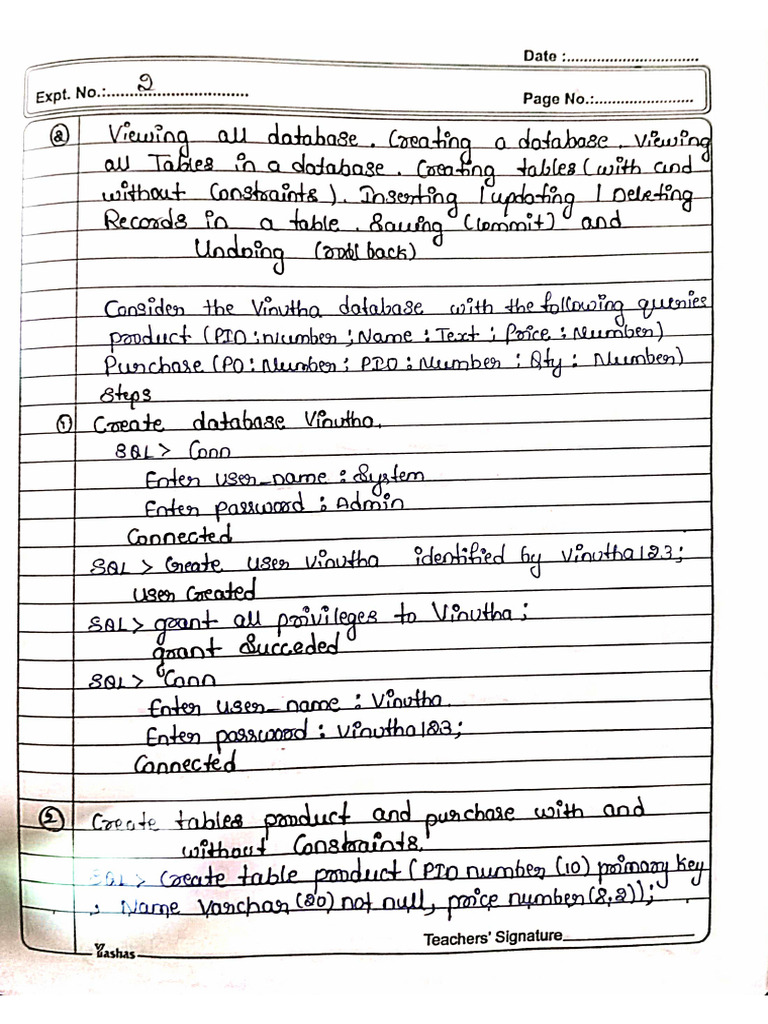 Date :................................
Expt. No.:.......2.........................
Page No.:.......................
② Viewing all database. Creating a database. Viewing
all Tables in a database. Creating tables (with and
without Constraints). Inserting / updating / Deleting
Records in a table. Saving (Commit) and
Undoing (roll back)
Consider the Vinutha database with the following queries
product (PID : number ; Name : Text ; Price : Number)
Purchase (PO : Number ; PID : Number ; Qty : Number)
Steps
① Create database Vinutha.
SQL > Conn
Enter user_name : System
Enter password : Admin
Connected
SQL > Create user vinutha identified by vinutha123;
user Created
SQL > grant all privileges to Vinutha ;
grant Succeded
SQL > Conn
Enter user_name : Vinutha.
Enter password : vinutha123;
Connected
② Create tables product and purchase with and
without Constraints.
SQL > Create table product (PID number (10) primary key
; Name Varchar (20) not null, price number (8,2));
Teachers' Signature
Yashas